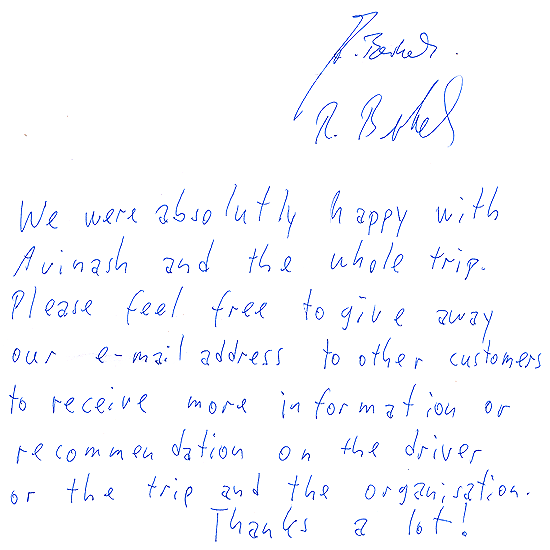 We were absolutly happy with
Avinash and the whole trip.
Please feel free to give away
our e-mail address to other customers
to receive more information or
recommendation on the driver
or the trip and the organisation.
Thanks a lot!